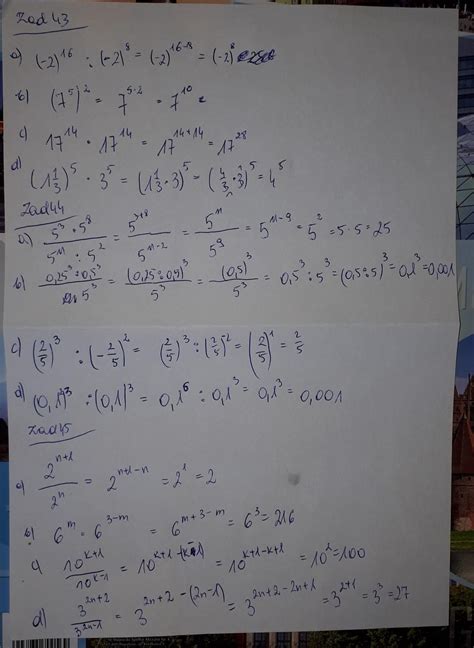 Zad 43
a) (-2)^16 : (-2)^8 = (-2)^16-8 = (-2)^8
b) (7^5)^2 = 7^5·2 = 7^10
c) 17^14 · 17^14 = 17^14+14 = 17^28
d) (1 1/3)^5 · 3^5 = (1 1/3 · 3)^5 = (4/3 · 3)^5 = 4^5
Zad 44
a) 5^3 · 5^8 / 5^11 : 5^2 = 5^3+8 / 5^11-2 = 5^11 / 5^9 = 5^11-9 = 5^2 = 5·5 = 25
b) (0,5)^3 / 5^3 = 0,5^3 : 5^3 = (0,5:5)^3 = 0,1^3 = 0,001
c) (2/5)^3 : (-2/5)^2 = (2/5)^3 : (2/5)^2 = (2/5)^1 = 2/5
d) : (0,1)^3 = 0,1^6 : 0,1^3 = 0,1^3 = 0,001
Zad 45
a) 2^n+1 / 2^n = 2^n+1-n = 2^1 = 2
b) 6^m · 6^3-m = 6^m+3-m = 6^3 = 216
c) 10^k+1 / 10^k-1 = 10^k+1-(k-1) = 10^k+1-k+1 = 10^2 = 100
d) 3^2n+2 / 3^2n-1 = 3^2n+2-(2n-1) = 3^2n+2-2n+1 = 3^2+1 = 3^3 = 27